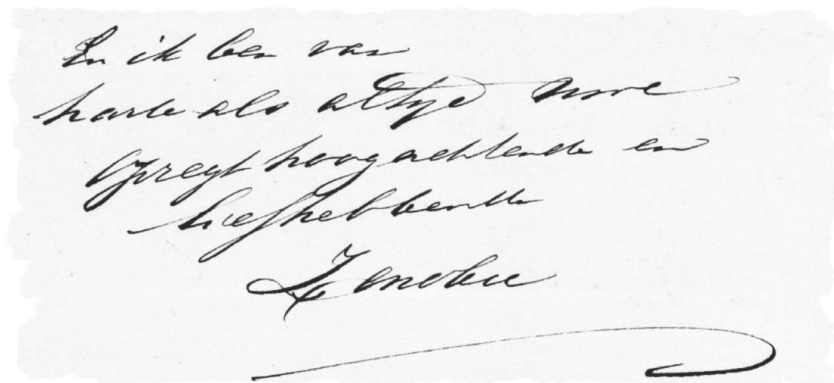 En ik ben van
harte als altyd Uwe
opregt hoogachtende en
liefhebbende
Zenobie